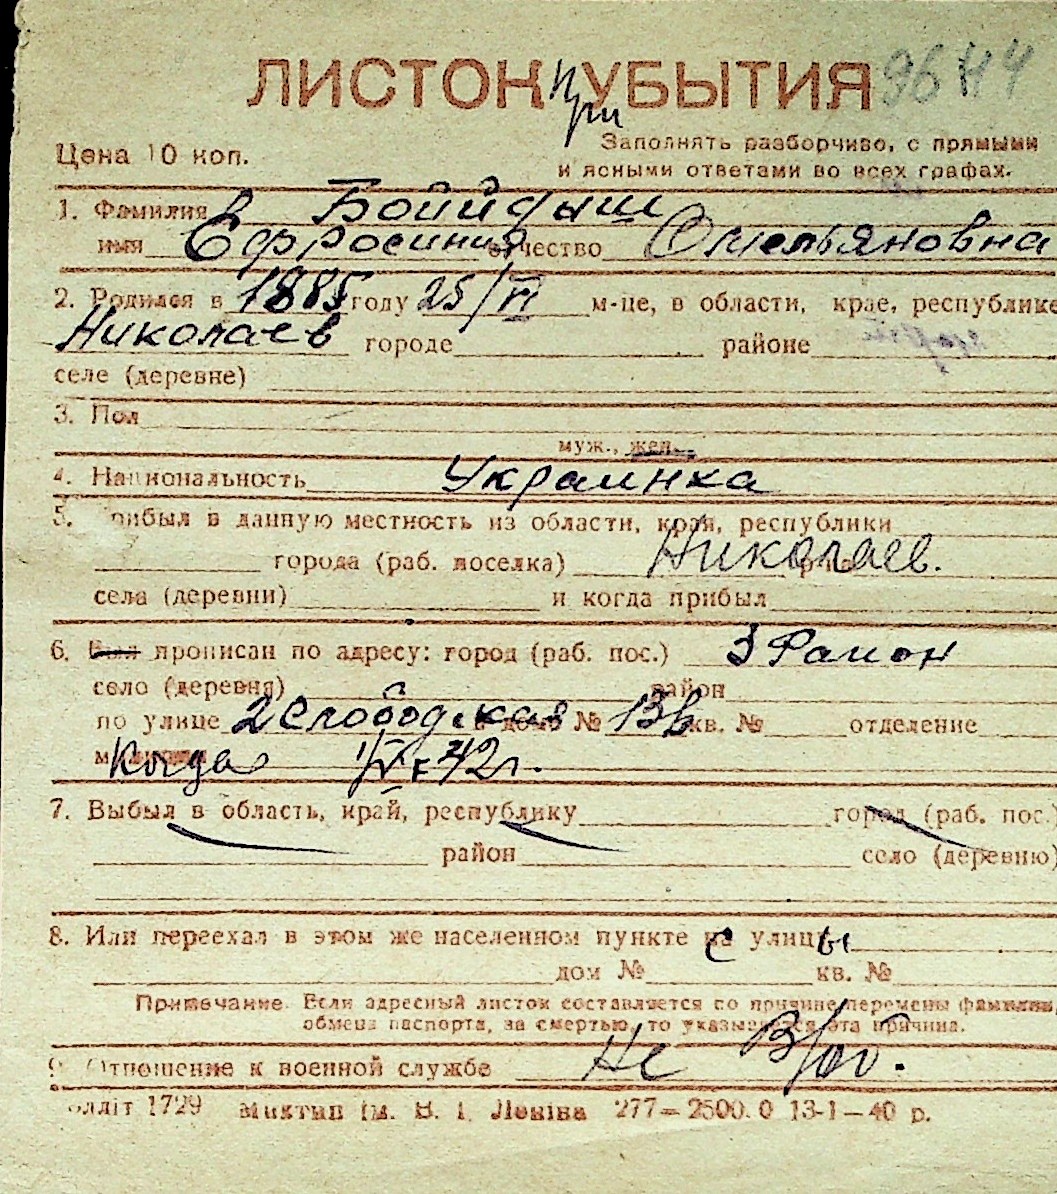 ЛИСТОК при УБЫТИЯ 9644
Цена 10 коп.
Заполнять разборчиво, с прямыми
и ясными ответами во всех графах.
1. Фамилия Бойидыш
имя Ефросиния отчество Омельяновна
2. Родился в 1885 году 25/VI м-це, в области, крае, республике
Николаев городе районе
селе (деревне)
3. Пол
муж., жен.
4. Национальность Украинка
5. Прибыл в данную местность из области, края, республики
города (раб. поселка) Николаев.
села (деревни) и когда прибыл
6. Был прописан по адресу: город (раб. пос.) 3 Район
село (деревня) район
по улице 2 Слободская дом № 13 кв. № отделение
Когда 42 г.
7. Выбыл в область, край, республику город (раб. пос.)
район село (деревню)
8. Или переехал в этом же населенном пункте с улицы
дом № кв. №
Примечание. Если адресный листок составляется по причине перемены фамилии,
обмена паспорта, за смертью, то указывается эта причина.
9. Отношение к военной службе Не В/об.
олліт 1729 Миктип ім. В. І. Леніна 277—2500. 0 13-1—40 р.